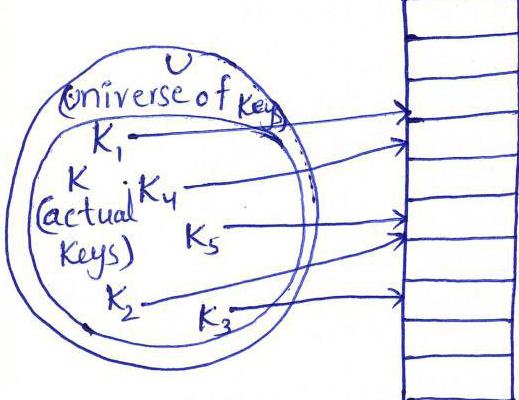 U
(universe of Keys)
K1
K
K4
(actual
Keys)
K5
K2
K3